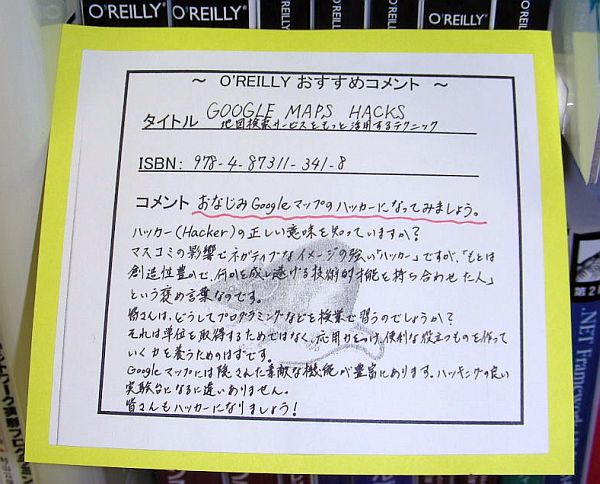 O'REILLY® O'REILLY® O'REILLY O'REILLY
～ O'REILLY おすすめコメント ～
タイトル GOOGLE MAPS HACKS
地図検索サービスをもっと活用するテクニック
ISBN: 978-4-87311-341-8
コメント おなじみGoogleマップのハッカーになってみましょう。
ハッカー(Hacker)の正しい意味を知っていますか?
マスコミの影響でネガティブなイメージの強い「ハッカー」ですが、「もとは
創造性豊かで、何かを成し遂げる技術的才能を持ち合わせた人」
という褒め言葉なのです。
皆さんは、どうしてプログラミングなどを授業で習うのでしょうか?
それは単位を取得するためではなく、応用力をつけ、便利な役立つものを作って
いく力を養うためのはずです。
Googleマップには隠された素敵な機能が豊富にあります。ハッキングの良い
実験台になるに違いありません。
皆さんもハッカーになりましょう!
第2
.NET Framework